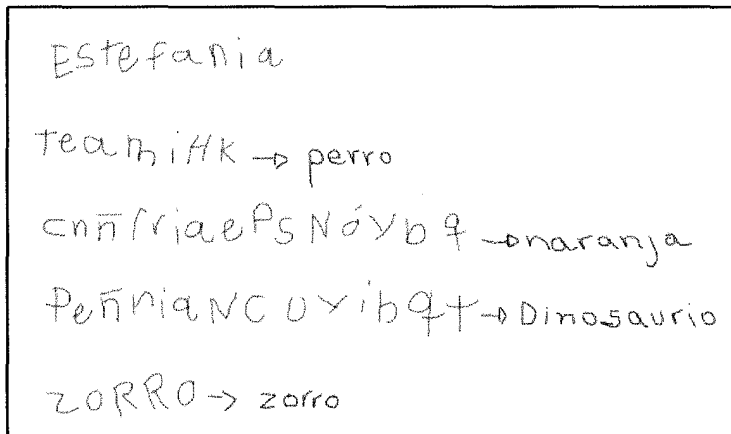 Estefania
teamiHK → perro
cnñrriaePSNóYbq → naranja
PeñriaNCUYibqt → Dinosaurio
ZORRO → zorro